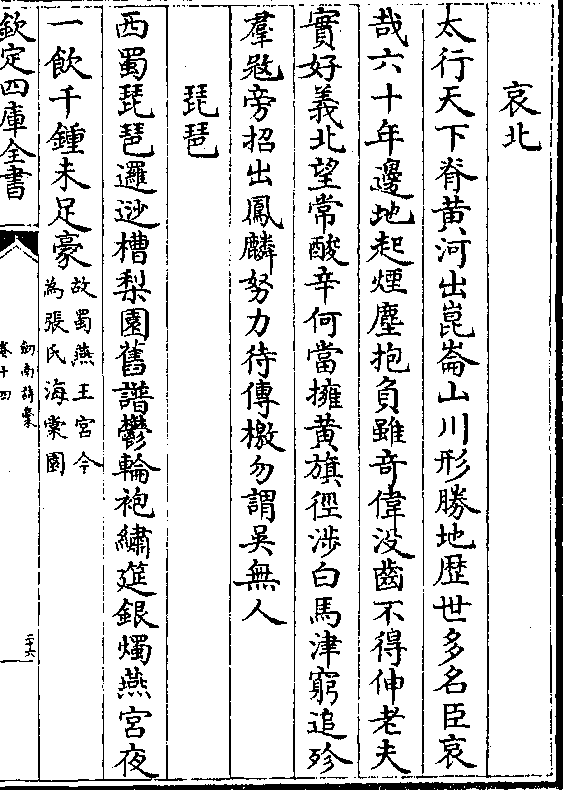 哀北
太行天下脊黄河出崑崙山川形勝地歴世多名臣哀
哉六十年邊地起煙塵抱負雖奇偉没齒不得伸老夫
實好義北望常酸辛何當擁黄旗徑渉白馬津窮追殄
羣㓂旁招出鳳麟努力待傳檄勿謂吳無人
琵琶
西蜀琵琶邏逤槽梨園舊譜鬱輪袍繡筵銀燭燕宮夜
一飲千鍾未足豪故蜀燕王宮今
為張氏海棠園
欽定四庫全書
劍南詩稾
卷十四
二十六